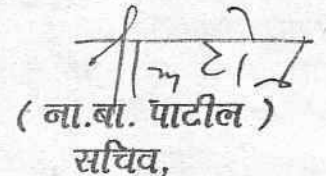 ( ना.बा. पाटील )
सचिव,